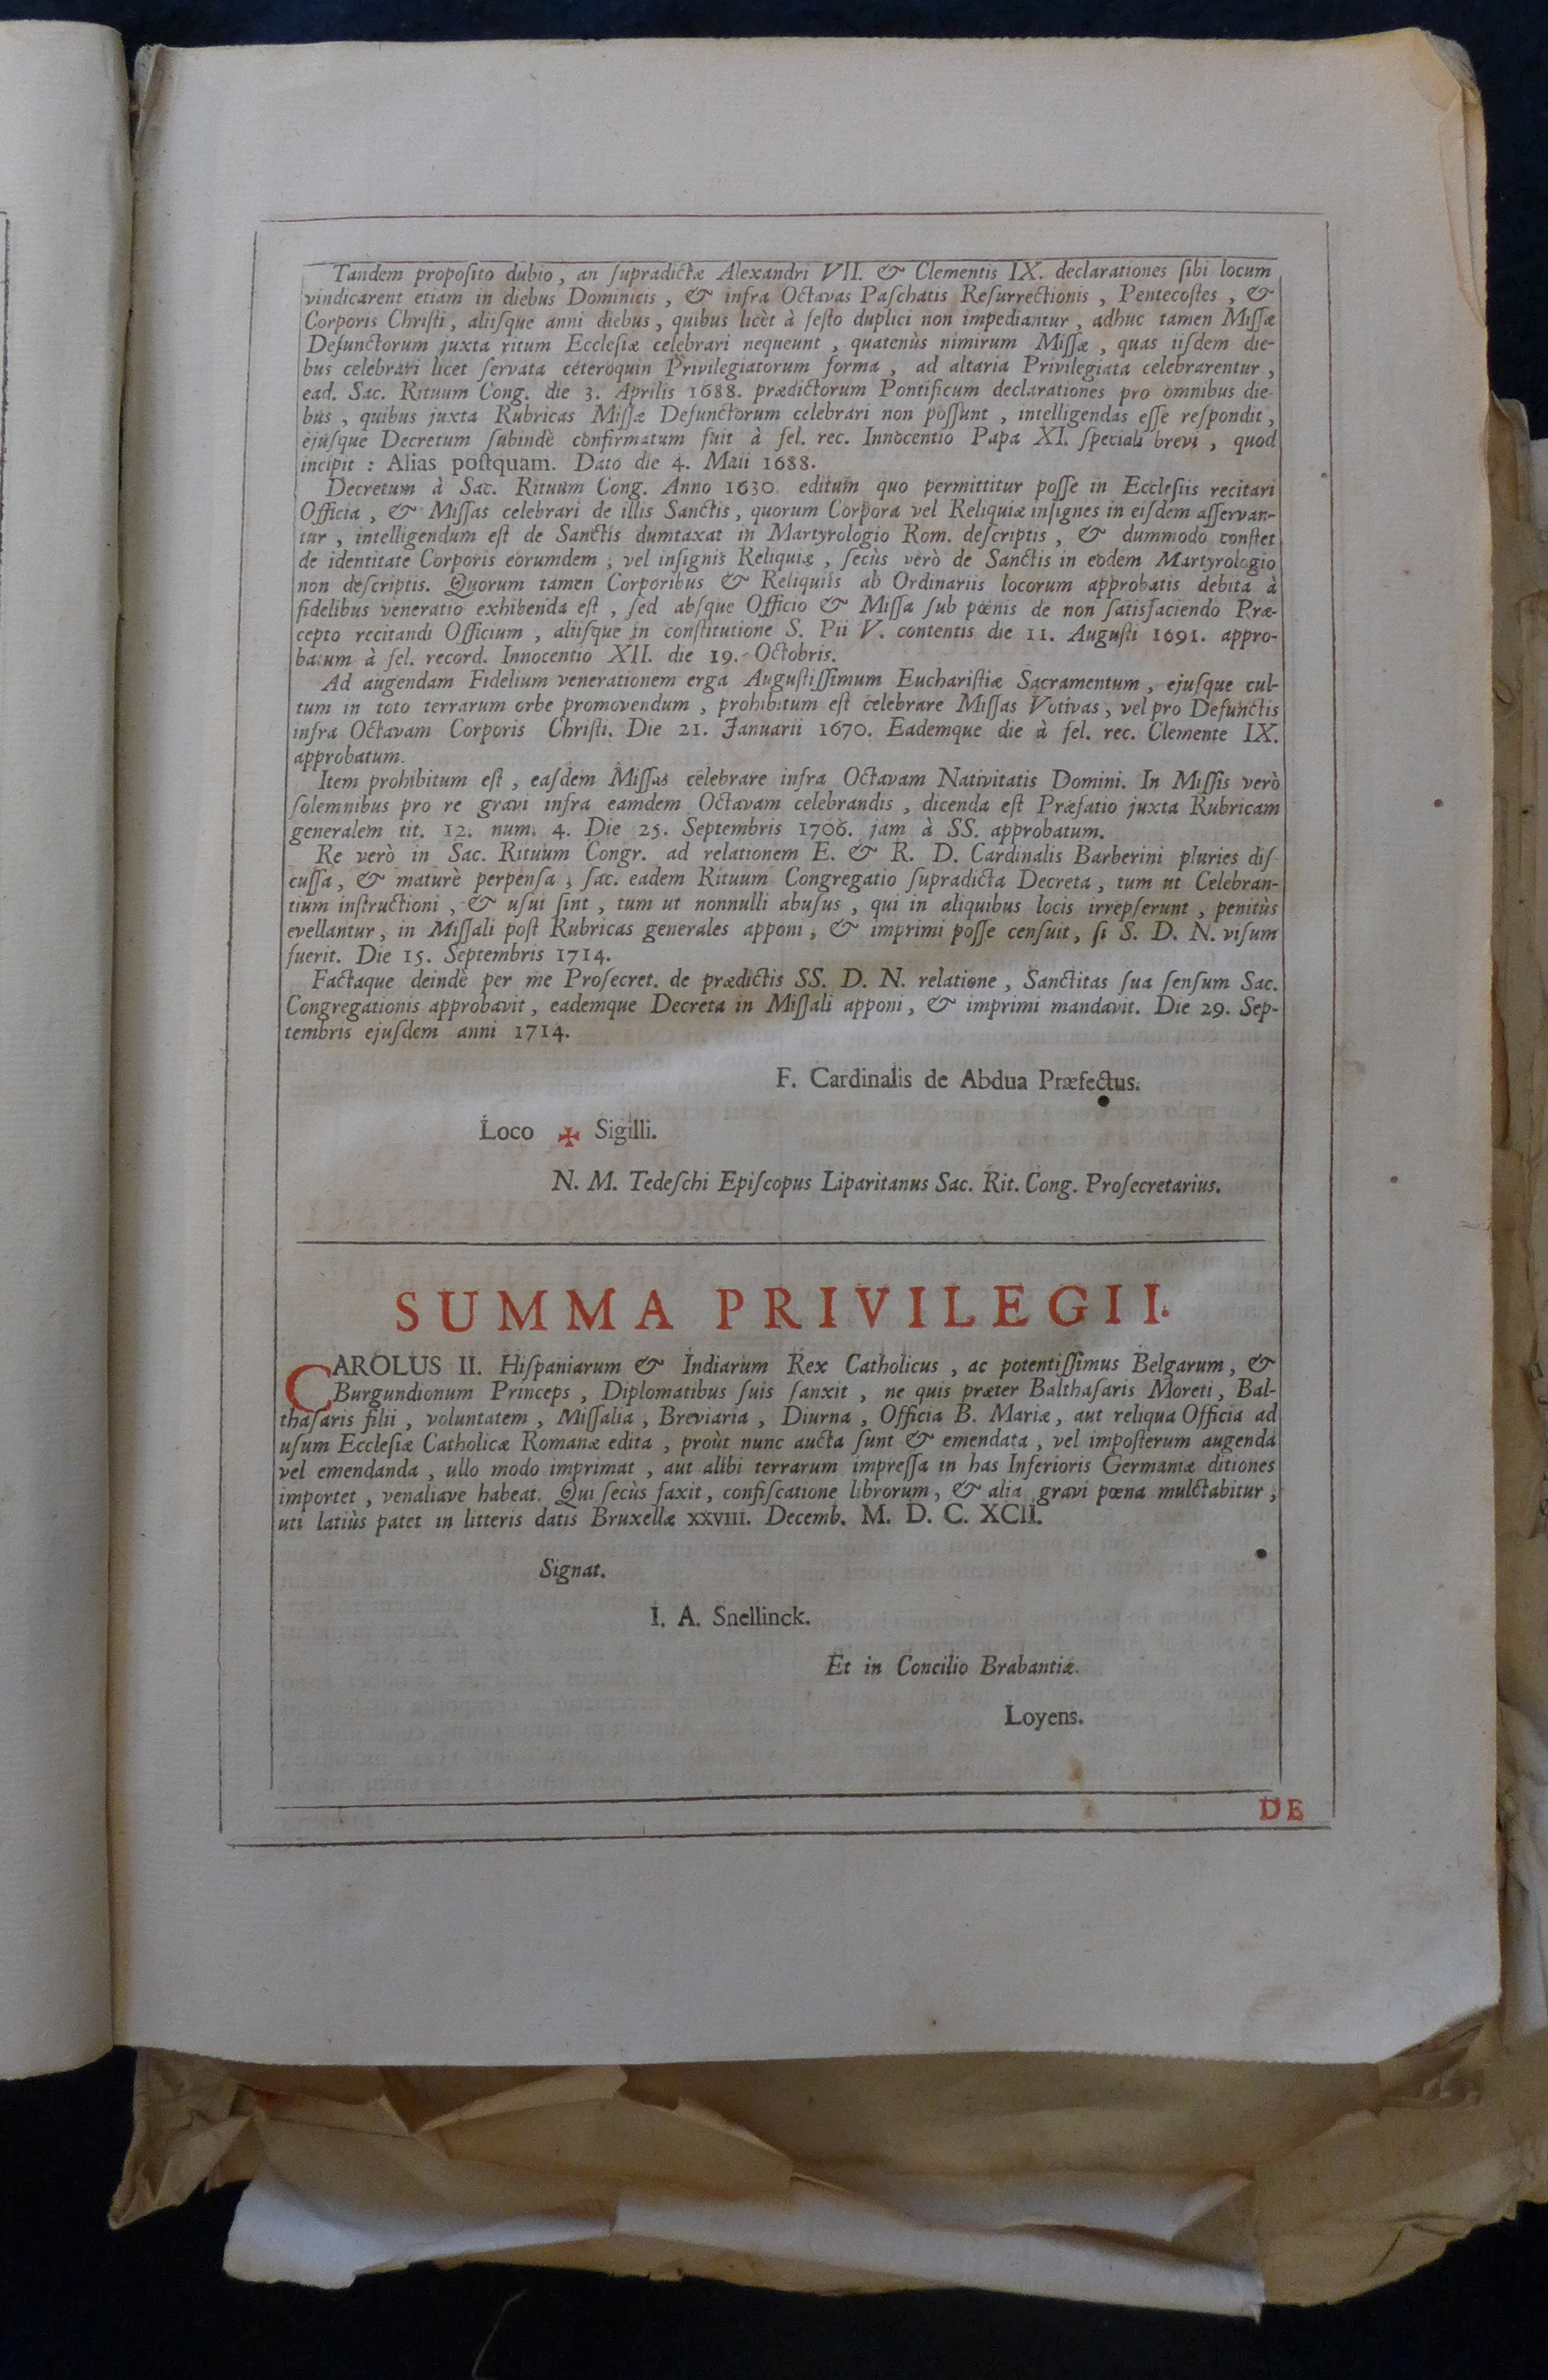 Tandem propoſito dubio, an ſupradictæ Alexandri VII. & Clementis IX. declarationes ſibi locum
vindicarent etiam in diebus Dominicis, & infra Octavas Paſchatis Reſurrectionis, Pentecoſtes, &
Corporis Chriſti, aliiſque anni diebus, quibus licèt à feſto duplici non impediantur, adhuc tamen Miſſæ
Defunctorum juxta ritum Eccleſiæ celebrari nequeunt, quatenùs nimirum Miſſæ, quas iiſdem die-
bus celebrari licet ſervata céteroquin Privilegiatorum forma, ad altaria Privilegiata celebrarentur,
ead. Sac. Rituum Cong. die 3. Aprilis 1688. prædictorum Pontificum declarationes pro omnibus die-
bus, quibus juxta Rubricas Miſſæ Defunctorum celebrari non poſſunt, intelligendas eſſe reſpondit,
ejuſque Decretum ſubindè confirmatum fuit à fel. rec. Innocentio Papa XI. ſpeciali brevi, quod
incipit : Alias poſtquam. Dato die 4. Maii 1688.
Decretum à Sac. Rituum Cong. Anno 1630. editum quo permittitur poſſe in Eccleſiis recitari
Officia, & Miſſas celebrari de illis Sanctis, quorum Corpora vel Reliquiæ inſignes in eiſdem aſſervan-
tur, intelligendum eſt de Sanctis dumtaxat in Martyrologio Rom. deſcriptis, & dummodo conſtet
de identitate Corporis eorumdem ; vel inſignis Reliquiæ, ſecùs verò de Sanctis in eodem Martyrologio
non deſcriptis. Quorum tamen Corporibus & Reliquiis ab Ordinariis locorum approbatis debita à
fidelibus veneratio exhibenda eſt, ſed abſque Officio & Miſſa ſub pœnis de non ſatisfaciendo Præ-
cepto recitandi Officium, aliiſque in conſtitutione S. Pii V. contentis die 11. Auguſti 1691. appro-
batum à fel. record. Innocentio XII. die 19. Octobris.
Ad augendam Fidelium venerationem erga Auguſtiſſimum Euchariſtiæ Sacramentum, ejuſque cul-
tum in toto terrarum orbe promovendum, prohibitum eſt celebrare Miſſas Votivas, vel pro Defunctis
infra Octavam Corporis Chriſti. Die 21. Januarii 1670. Eademque die à fel. rec. Clemente IX.
approbatum.
Item prohibitum eſt, eaſdem Miſſas celebrare infra Octavam Nativitatis Domini. In Miſſis verò
ſolemnibus pro re gravi infra eamdem Octavam celebrandis, dicenda eſt Præfatio juxta Rubricam
generalem tit. 12. num. 4. Die 25. Septembris 1706. jam à SS. approbatum.
Re verò in Sac. Rituum Congr. ad relationem E. & R. D. Cardinalis Barberini pluries diſ-
cuſſa, & maturè perpenſa, ſac. eadem Rituum Congregatio ſupradicta Decreta, tum ut Celebran-
tium inſtructioni, & uſui ſint, tum ut nonnulli abuſus, qui in aliquibus locis irrepſerunt, penitùs
evellantur, in Miſſali poſt Rubricas generales apponi, & imprimi poſſe cenſuit, ſi S. D. N. viſum
fuerit. Die 15. Septembris 1714.
Factaque deindè per me Proſecret. de prædictis SS. D. N. relatione, Sanctitas ſua ſenſum Sac.
Congregationis approbavit, eademque Decreta in Miſſali apponi, & imprimi mandavit. Die 29. Sep-
tembris ejuſdem anni 1714.
F. Cardinalis de Abdua Præfectus.
Loco ✠ Sigilli.
N. M. Tedeſchi Epiſcopus Liparitanus Sac. Rit. Cong. Proſecretarius.
SUMMA PRIVILEGII.
CAROLUS II. Hiſpaniarum & Indiarum Rex Catholicus, ac potentiſſimus Belgarum, &
Burgundionum Princeps, Diplomatibus ſuis ſanxit, ne quis præter Balthaſaris Moreti, Bal-
thaſaris filii, voluntatem, Miſſalia, Breviaria, Diurna, Officia B. Mariæ, aut reliqua Officia ad
uſum Eccleſiæ Catholicæ Romanæ edita, proùt nunc aucta ſunt & emendata, vel impoſterum augenda
vel emendanda, ullo modo imprimat, aut alibi terrarum impreſſa in has Inferioris Germaniæ ditiones
importet, venaliave habeat. Qui ſecùs faxit, confiſcatione librorum, & alia gravi pœna mulctabitur,
uti latiùs patet in litteris datis Bruxellæ XXVIII. Decemb. M. D. C. XCII.
Signat.
I. A. Snellinck.
Et in Concilio Brabantiæ.
Loyens.
DE